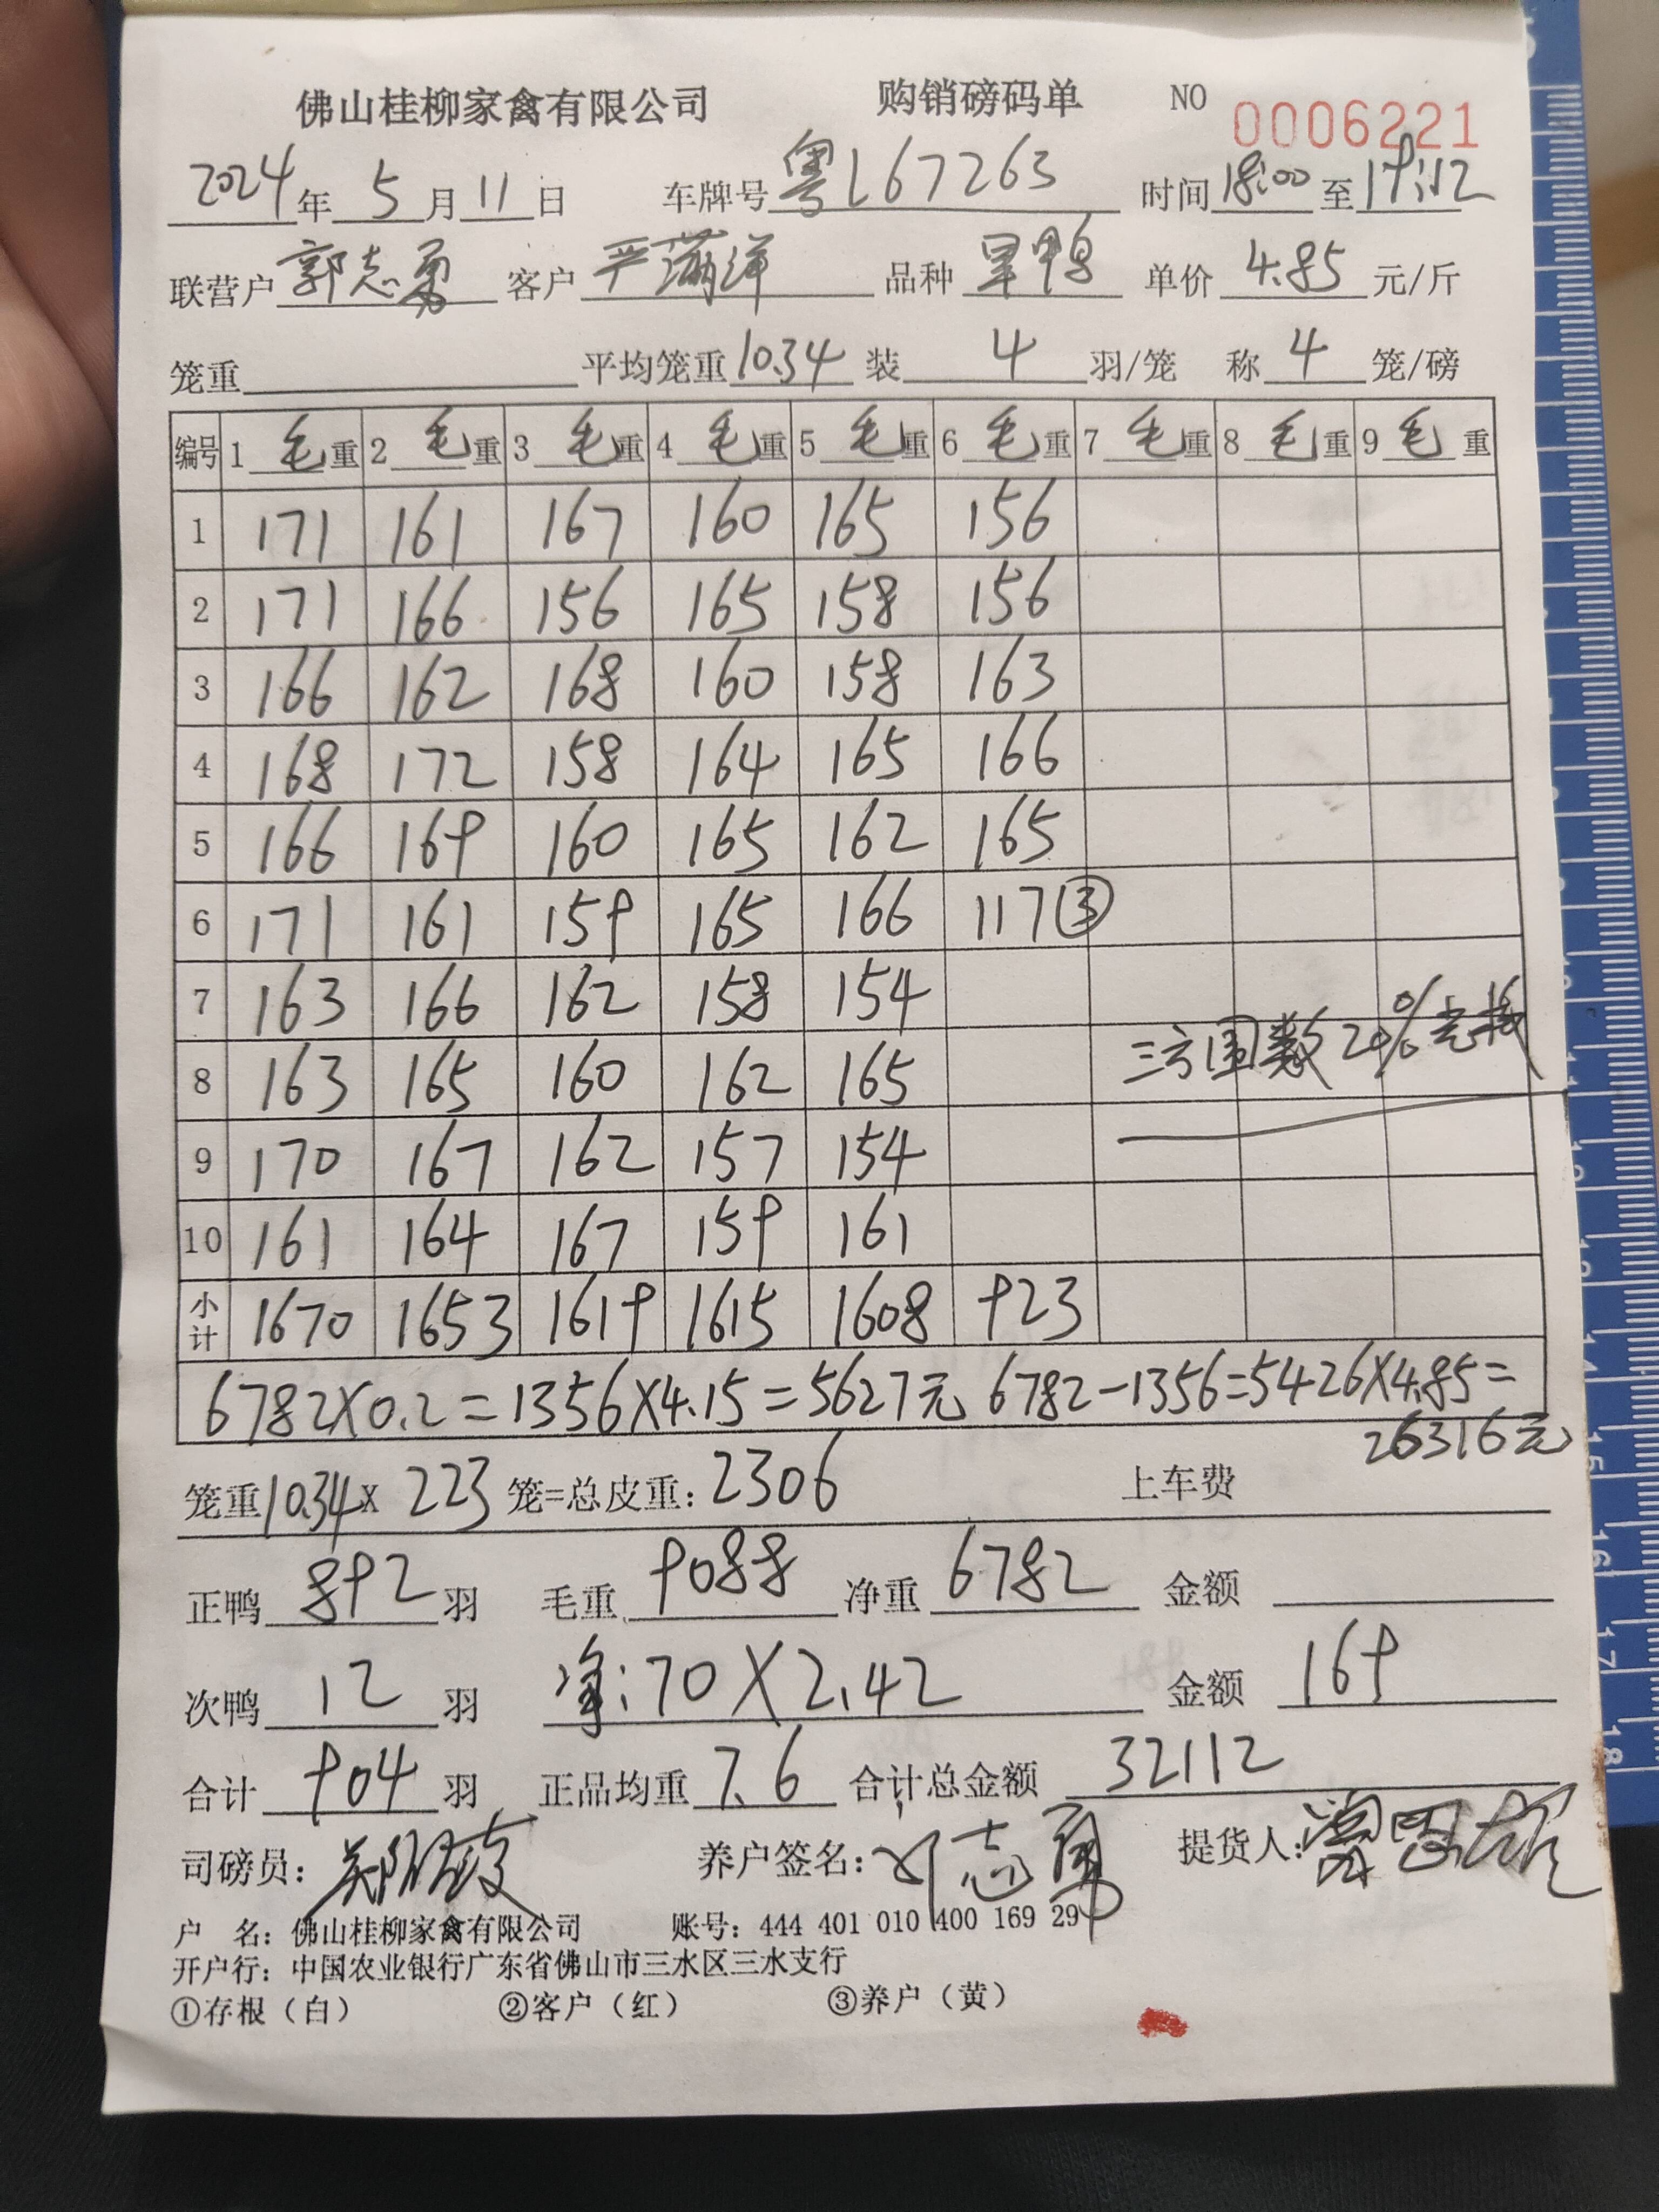 佛山桂柳家禽有限公司 购销磅码单 NO 0006221
2024年5月11日 车牌号 粤L67263 时间18:00至19:12
联营户 郭志勇 客户 严满洋 品种 旱鸭 单价 4.85 元/斤
笼重 平均笼重10.34 装 4 羽/笼 称 4 笼/磅
编号 1 毛重 2 毛重 3 毛重 4 毛重 5 毛重 6 毛重 7 毛重 8 毛重 9 毛重
1 171 161 167 160 165 156
2 171 166 156 165 158 156
3 166 162 168 160 158 163
4 168 172 158 164 165 166
5 166 169 160 165 162 165
6 171 161 159 165 166 117③
7 163 166 162 158 154
8 163 165 160 162 165
三方围数20%
9 170 167 162 157 154
10 161 164 167 159 161
小计 1670 1653 1619 1615 1608 923
6782×0.2=1356×4.15=5627元 6782-1356=5426×4.85=
26316元
笼重10.34× 223 笼=总皮重:2306 上车费
正鸭 892 羽 毛重 9088 净重 6782 金额
次鸭 12 羽 净:70×2.42 金额 169
合计 904 羽 正品均重 7.6 合计总金额 32112
司磅员: 养户签名: 志勇 提货人:
户 名: 佛山桂柳家禽有限公司 账号: 444 401 010 400 169 29
开户行: 中国农业银行广东省佛山市三水区三水支行
①存根（白） ②客户（红） ③养户（黄）